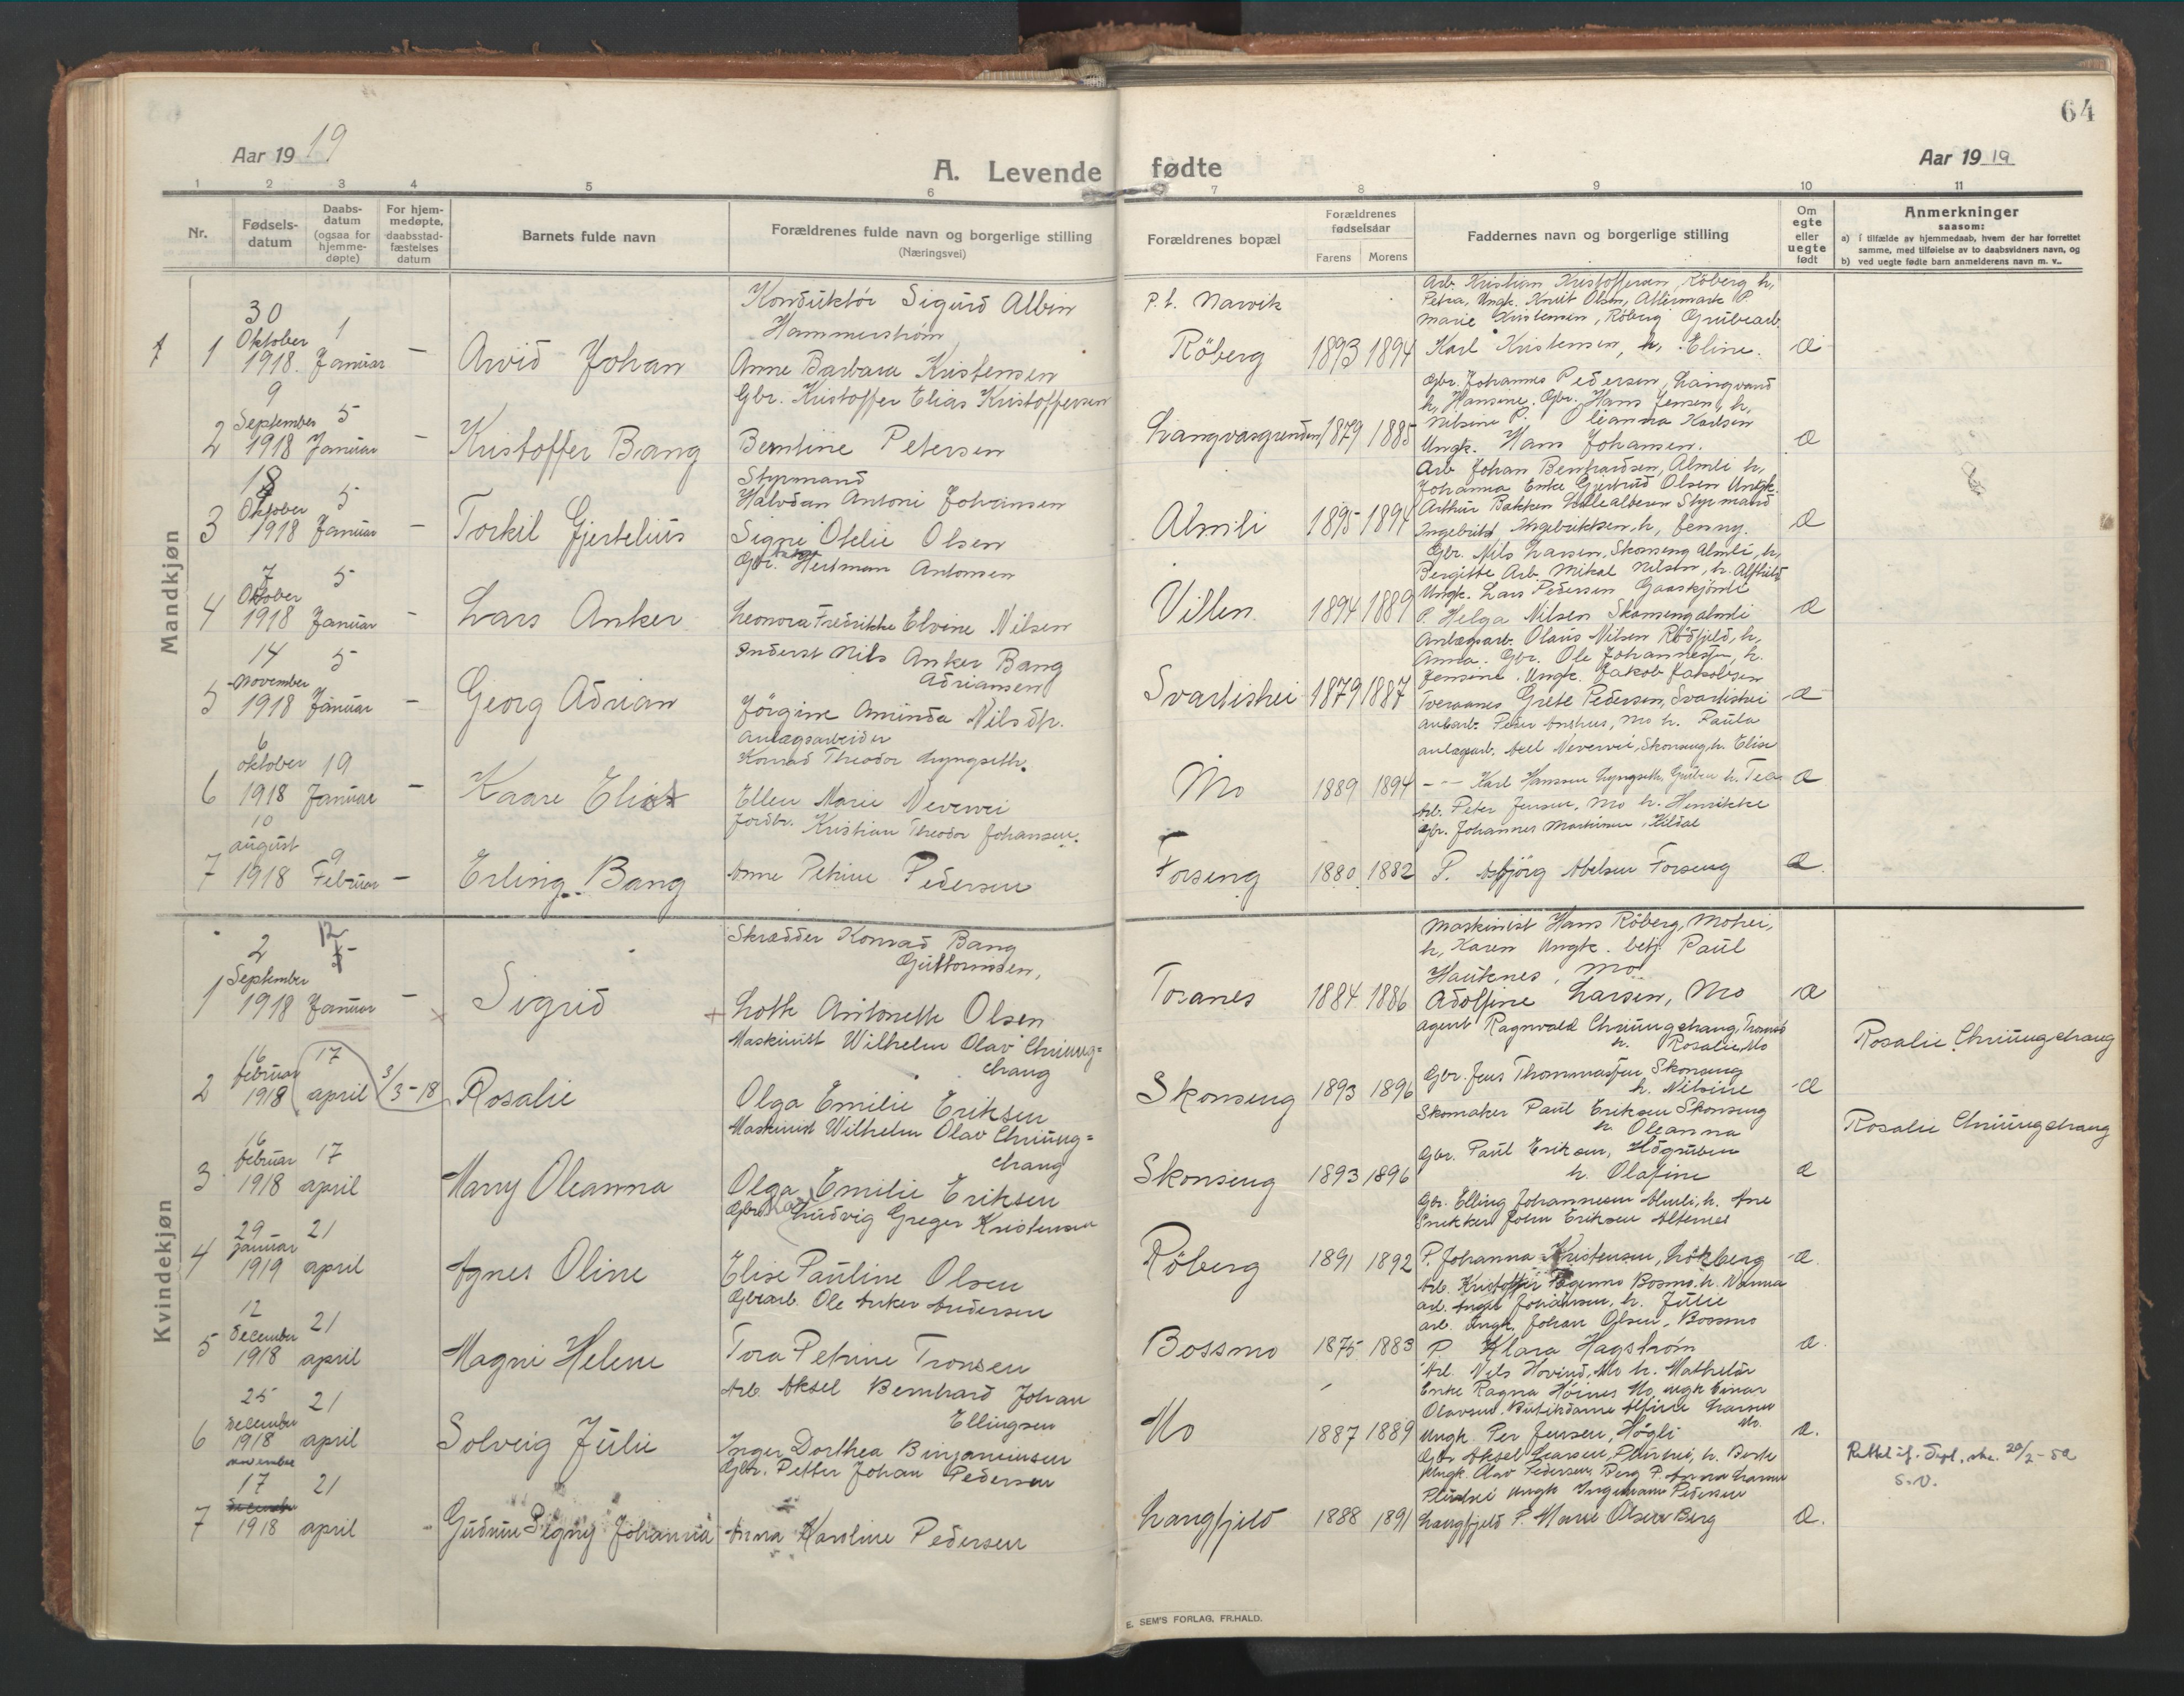 64
Aar 1919
A. Levende fødte
Aar 1919
1 2 3 4 5 6 7 8 9 10 11
Nr.
Fødsels-
datum
Daabs-
datum
(ogsaa for
hjemme-
døpte)
For hjem-
medøpte,
daabsstad-
fæstelses
datum
Barnets fulde navn
Forældrenes fulde navn og borgerlige stilling
(Næringsvei)
Forældrenes bopæl
Forældrenes
fødselsaar
Farens Morens
Faddernes navn og borgerlige stilling
Om
egte
eller
uegte
født
Anmerkninger
saasom:
a) i tilfælde av hjemmedaab, hvem der har forrettet
samme, med tilføielse av to daabsvidners navn, og
b) ved uegte fødte barn anmelderens navn m. v..
Mandkjøn
1
30
Oktober
1918.
1
Januar
–
Arvid Johan
Konduktör Sigurd Albin
Hammerström
Anne Barbara Kristensen
p.t. Narvik
Röberg
1893 1894
Arb. Kristian Kristoffersen, Röberg h,
Petra, Ungk. Knut Olsen, P.
Marie Kristensen, Röberg Grubearb.
Karl Kristensen, h, Eline.
æ
2
9
September
1918
5
Januar
–
Kristoffer Bang
Gbr. Kristoffer Elias Kristoffersen
Berntine Petersen
Langvasgrunden
1879 1885
Gbr. Johannes Pedersen, Langvand
h, Hansine. Gbr. Hans Jensen, h,
Nilsine P. Oleanna Karlsen
Ungk. Hans Johansen.
æ
3
18
Oktober
1918
5
Januar
–
Torkil Gjertelius
Styrmand
Halvdan Antoni Johansen
Signe Otelie Olsen
Almli
1895 1894
Arb. Johan Bernhardsen, Almli h,
Johanna Enke Gjertrud Olsen Ungk.
Arthur Bakken Styrmand
Ingebrigt Ingebriktsen, h, Jenny.
æ
4
7
Oktober
1918
5
Januar
–
Lars Anker
Gbr. Hertman Antonsen
Leonora Fredrikke Elvine Nilsen
Villen
1894 1889
Gbr. Nils Larsen, Skonseng Almli, h,
Bergitte Arb. Mikal Nilsen, h. Alfhild
Ungk. Lars Pedersen
P. Helga Nilsen Skonsengalmli
æ
5
14
November
1918
5
Januar
–
Georg Adrian
Inderst Nils Anker Bang
Adriansen
Jörgine Aminda Nilsdtr.
Svartishei
1879 1887
Anlægsarb. Olaus Nilsen Rödfjeld, h,
Anna. Gbr. Ole Johannessen h.
Jensine. Ungk. Jakob Jakobsen
Tveraanes Grete Pedersen, Svartishei
æ
6
6
oktober
1918
19
Januar
–
Kaare Elias
Anlægsarbeider
Konrad Theodor Lyngseth.
Ellen Marie Nevervei
Mo
1889 1894
anlarb. Peder Mo h. Paula
anlægsarb. Axel Nevervei, Skonseng, h. Elise
– – Karl Hanssen Lyngseth, Gruben h. Tea
Arb. Peter Jensen, Mo h. Henrikke
æ
7
10
august
1918
9
Februar
–
Erling Bang
Jordbr. Kristian Theodor Johansen.
Anne Petrine Pedersen
Forseng
1880 1882
Gbr. Johannes Martinsen, Kildal
P. Asbjörg Abelsen Forseng
æ
Kvindekjøn
1
2
September
1918
12
Januar
–
Sigrid
Skrædder Konrad Bang
Guttormsen,
Lotte Antonette Olsen
Toranes
1884 1886
Maskinist Hans Röberg, Mohei,
h, Karen Ungk. betj. Paul
Hauknes, Mo
Adolfine Larsen, Mo
æ
2
16
februar
1918
17
april
3/3-18
Rosalie
Maskinist Wilhelm Olav Chriung=
chang
Olga Emilie Eriksen
Skonseng
1893 1896
Agent Ragnvald Chriungchang, Tromsö
h. Rosalie, Mo
Gbr. Jens Thommassen Skonseng
h. Nilsine
æ
Rosalie Chriungchang
3
16
februar
1918
17
april
Marry Oleanna
Maskinist Wilhelm Olav Chriung=
chang
Olga Emilie Eriksen
Skonseng
1893 1896
Skomaker Paul Eriksen Skonseng
h. Oleanna
Gbr. Paul Eriksen,
h. Olafine
æ
Rosalie Chriungchang
4
29
januar
1919
21
april
Agnes Oline
Gbr. Ludvig Greger Kristensen
Elise Pauline Olsen
Röberg
1891 1892
Gbr. Elling Johannesen Almli, h. Ane
Snekker John Eriksen Alternes
P. Johanna Kristensen,
æ
5
12
December
1918
21
april
Magni Helene
Gbrarb. Ole Anker Andersen
Tora Petrine Tronsen
Bossmo
1875 1883
Arb. Kristoffer Bosmo, h. Nanna
arb. Johansen, h. Julie
arb. Ungk. Johan Olsen, Bossmo
P. Klara Hagström
æ
6
25
December
1918
21
april
Solveig Julie
Arb. Aksel Bernhard Johan
Ellingsen
Inger Dorthea Binjaminsen
Mo
1887 1889
Arb. Nils Hovind, Mo h. Mathilde
Enke Ragna Höines Mo, ungk Einar
Olavsen, Butikdame Alfine Larsen
Mo.
Ungk. Per Jensen, Högli
æ.
7
november
17
1918
21
april
Gudrun Signy Johanna
Gbr. Petter Johan Pedersen
Anna Karoline Pedersen
Langfjeld
1888 1891
Gbr Aksel Larsen, h. Berte
Ungk. Olav Pedersen, Berg P. Anna Larsen
ungk Ingemann Pedersen
Langfjeld P. Marie Olsen Berg
æ.
20/2-52
S.V.
E. SEM'S FORLAG, FR.HALD.